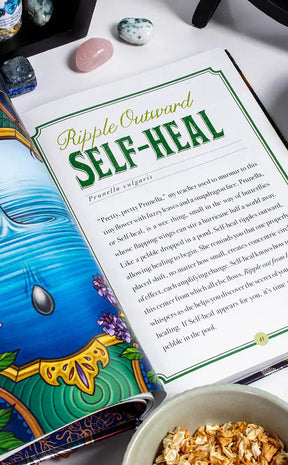 Ripple Outward
SELF-HEAL
Prunella vulgaris
"Pretty, pretty Prunella," my teacher used to murmur to this
tiny flower with fuzzy leaves and a snapdragon face. Prunella,
or Self-heal, is a wee thing, small in the way of butterflies
whose flapping wings can stir a hurricane half a world away.
Like a pebble dropped in a pond, Self-heal ripples outwards,
allowing healing to begin. She reminds us that one properly
placed shift, no matter how small, creates concentric circles
of effect, each amplifying change. Self-heal knows how to
this center from which all else flows. Ripple out from
whispers as she helps you discover the secret of
healing. If Self-heal appears for you, it's time
pebble in the pool.
11